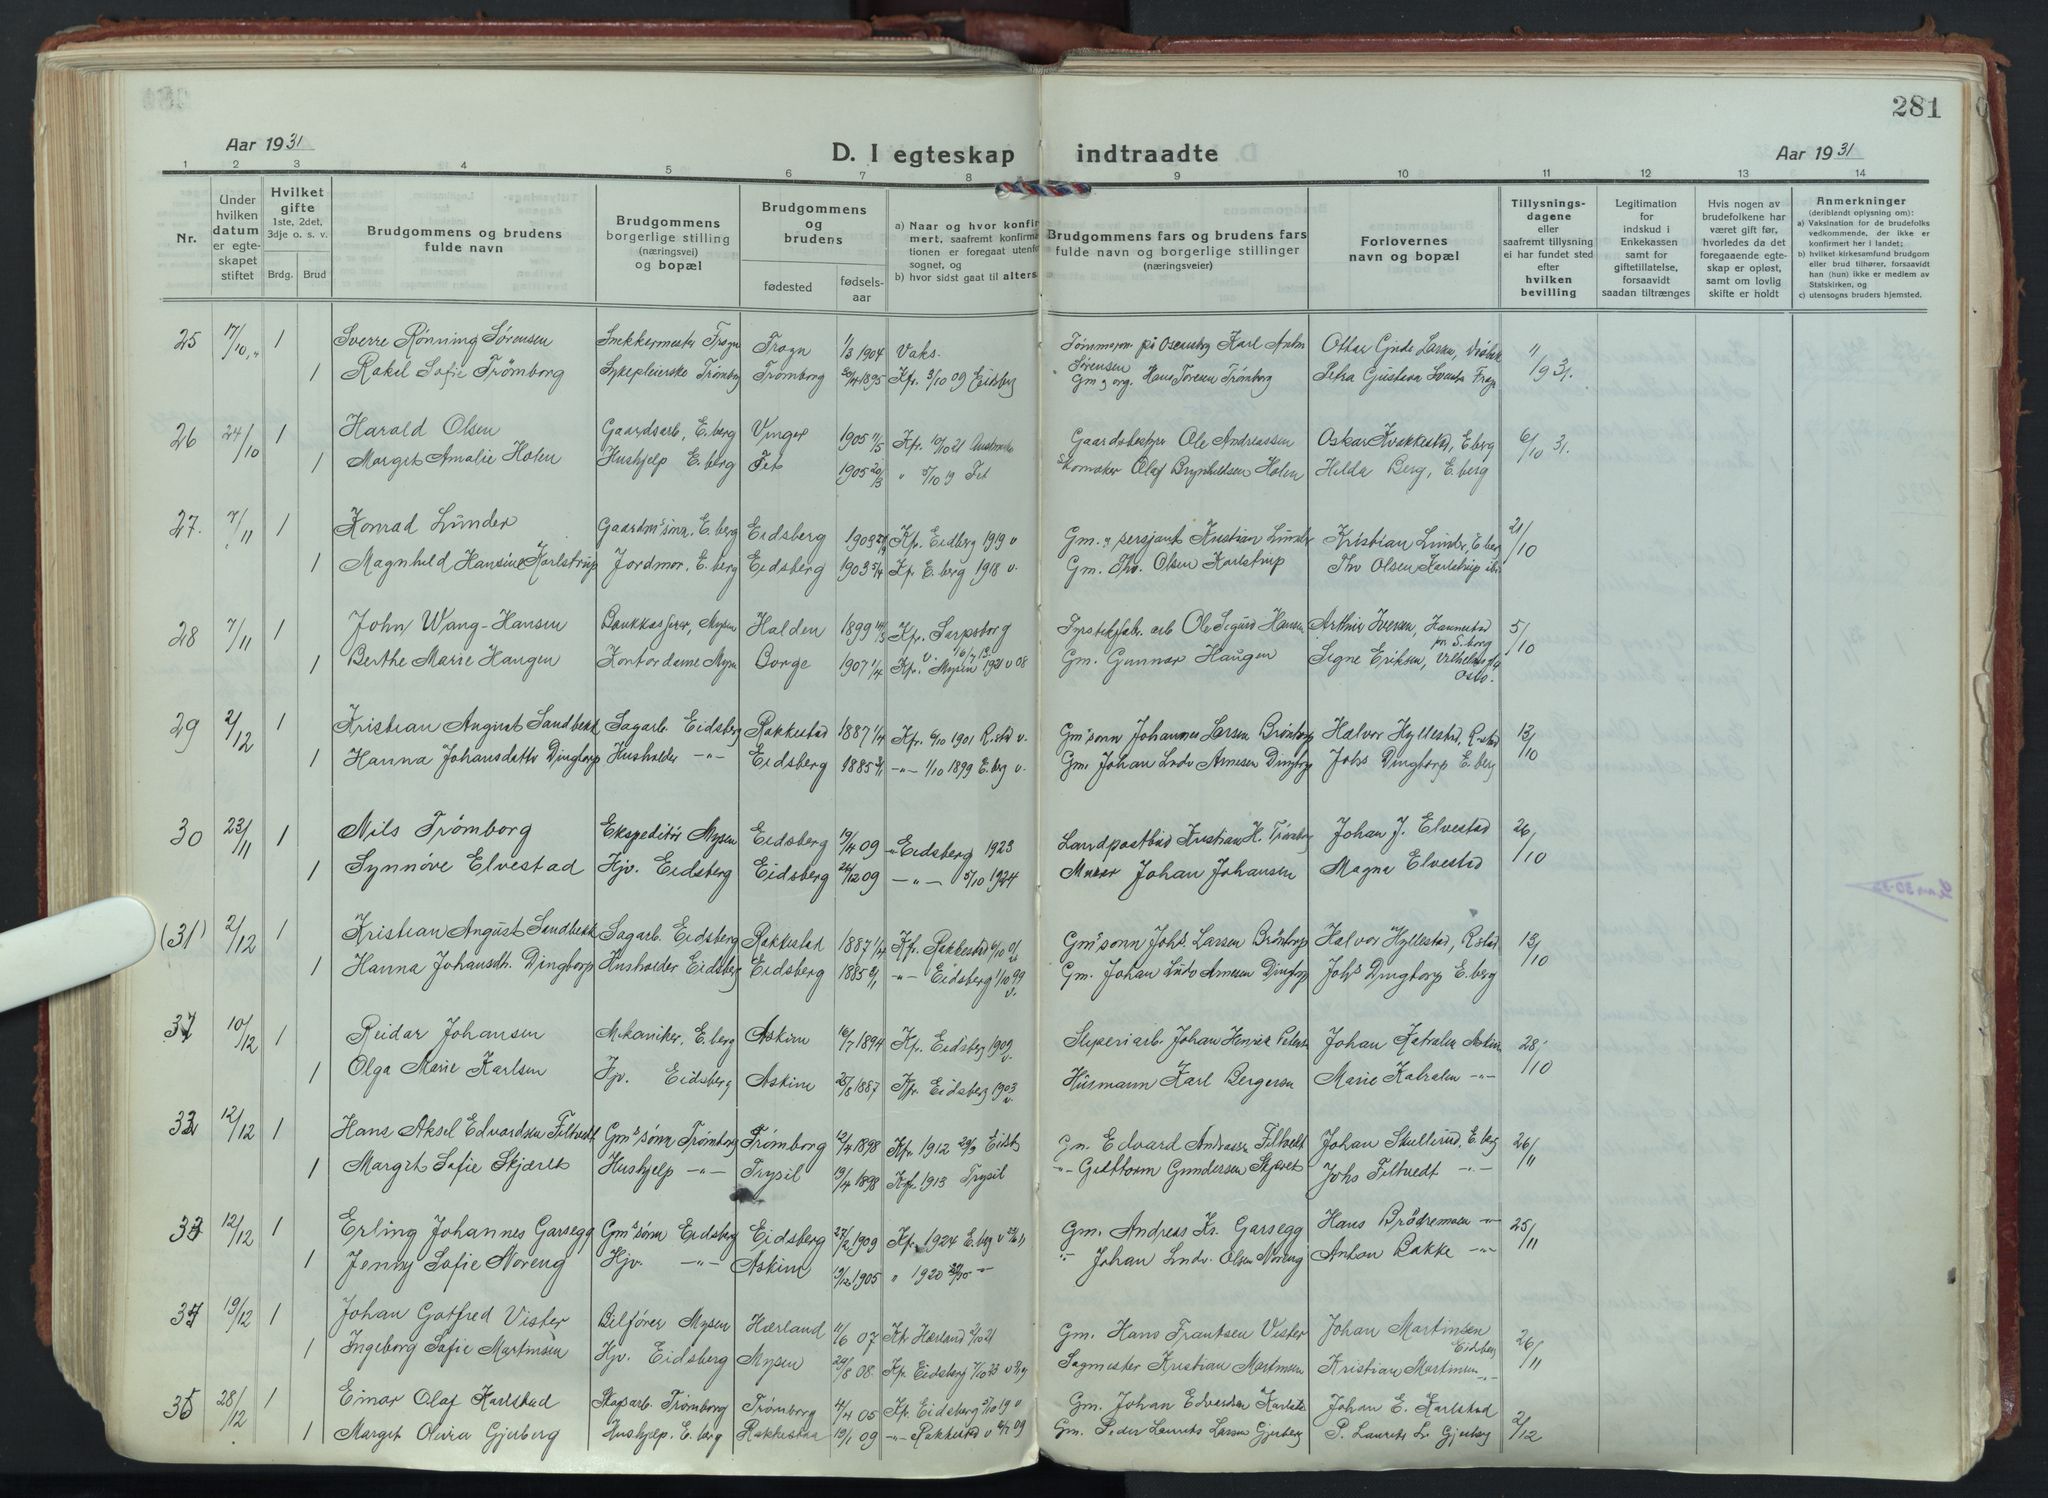 281
Aar 1931
D. I egteskap indtraadte
Aar 1931
1 2 3 4 5 6 7 8 9 10 11 12 13 14
Nr.
Under hvilken datum er egteskapet stiftet
Hvilket gifte 1ste, 2det, 3dje o. s. v.
Brdg. Brud
Brudgommens og brudens fulde navn
Brudgommens borgerlige stilling (næringsvei) og bopæl
Brudgommens og brudens
fødested fødsels-aar
a) Naar og hvor konfirmert, saafremt konfirmationen er foregaat utenfor sognet, og
b) hvor sidst gaat til alters
Brudgommens fars og brudens fars fulde navn og borgerlige stillinger (næringsveier)
Forlovernes navn og bopæl
Tillysnings-dagene eller saafremt tillysning ei har fundet sted efter hvilken bevilling
Legitimation for indskud i Enkekassen samt for giftetillatelse, forsaavidt saadan tiltrænges
Hvis nogen av brudefolkene har været gift før, hvorledes da det foregaaende egteskap er opløst, samt om lovlig skifte er holdt
Anmerkninger
(deriblendt oplysning om):
a) Vaksination for de brudefolks vedkommende, der ikke er konfirmert her i landet;
b) hvilket kirkesamfund brudgom eller brud tilhører, forsaavidt han (hun) ikke er medlem av Statskirken, og
c) utensogns bruders hjemsted.
25 17/10 1 Sverre Rønning Sørensen Snekkermester Frogn Frogn 1/3 1904 Vaks. Tømmerm. på Oscarsborg Karl Anton Sørensen Ottar Gjnde Larsen, Drøbak
1 Rakel Sofie Trømborg Sykepleierske Trømborg Trømborg 20/4 1895 Kfr. 3/10 09 Eidsberg Gm og org. Hans Toresen Trømborg Petra Gustava 1931.
26 24/10 1 Harald Olsen Gaardsarb, E.berg Vinger 1905 11/5 Kfr. 10/10 21 Gaardsbestyrer Ole Andreassen Oskar Kvakkestad, E.berg 6/10 31.
1 Marget Amalie Holen Hushjelp E.berg Fet 1905 20/3 " 5/10 19 Fet Skomaker Olaf Brynhildsen Holen Hilda Berg, E.berg
27. 7/11 1 Konrad Lunder Gaardm's sønn, E.berg Eidsberg 1903 Kfr. Eidberg 1919 v Gm. & sersjant Kristian Lunder Kristian Lunder, E.berg 21/10
1 Magnhild Hansine Karlstrup Jordmor, E.berg Eidsberg 1903 5/4 Kfr. E.berg 1918 v. Gm. Thv. Olsen Karlstrup Thv Olsen Karlstrup ibid
28 7/11 1 John Wang-Hansen Bankkasserer, Mysen Halden 1899 14/3 Kfr. Sarpsborg v. 16/7 13. Fyrstikfab. arb Ole Sigurd Hansen Arthur Iversen, Hannestad pr. S.borg 5/10
1 Berthe Marie Haugen Kontordame Mysen Borge 1907 1/4 Kfr. Mysen 1921 v 08 Gm. Gunnar Haugen Signe Eriksen, Oslo.
29 2/12 1 Kristian August Sandbekk Sagarb. Eidsberg Rakkestad 1887 1/4 Kfr. 6/10 1901 R.stad v. Gm's sønn Johannes Larsen Brøntorp Halvor Hyllestad, R-stad 13/10
1 Hanna Johansdatter Dingtorp Husholder -"- Eidsberg 1885 2/1 -"- 1/10 1899 E.berg v. Gm. Johan Ludv Arnesen Dingtorp Johs Dingtorp E.berg
30 23/11 1 Nils Trømborg Ekspeditør Mysen Eidsberg 19/4 09 " Eidsberg 1923 Landpostbud Kristian H. Trømborg Johan J. Elvestad 26/10
1 Synnøve Elvestad Hjv. Eidsberg Eidsberg 24/12 09 -"- 5/10 1924 Murer Johan Johansen Magna Elvestad
(31) 2/12 1 Kristian August Sandbekk Sagarb. Eidsberg Rakkestad 1887 1/4 Kfr. Rakkestad 6/10 01 Gm's sønn Johs. Larsen Brøntorp Halvor Hyllestad, R.stad 13/10
1 Hanna Johansdt. Dingtorp Husholder Eidsberg Eidsberg 1885 2/1 -"- Eidsberg 1/10 99 v. Gm. Johan Ludv Arnesen Dingtorp Johs Dingtorp E.berg
31 10/12 1 Reidar Johansen Mekaniker, E.berg Askim 16/7 1894 Kfr. Eidsberg 1909 v. Sliperiarb. Johan Henrik Petersen Johan Katralen Askim 28/10
1 Olga Marie Karlsen Hjv. Eidsberg Askim 25/8 1887 Kfr. Eidsberg 1903 v. Husmann Karl Bergersen Marie Katralen -"-
32 12/12 1 Hans Aksel Edvardsen Filtvedt Gm's sønn Trømborg Trømborg 12/4 1898 Kfr. 1912 29/9 Eidsb Gm. Edvard Andreassen Filtvedt Johan Skullerud, E.berg 26/11
1 Margit Sofie Skjæret Hushjelp -"- Trysil 13/4 1898 Kfr. 1913 Trysil -"- Guttorm Gundersen Skjæret Johs Filtvedt -"-
33 12/12 1 Erling Johannes Garsegg Gm's sønn Eidsberg Eidsberg 27/2 1909 Kfr. 1924 E.berg v Gm. Andreas Kr. Garsegg Hans Brødremoen -"- 25/11
1 Jenny Sofie Noreng Hjv. -"- Askim 13/12 1905 " 1920 -"- -"- Johan Ludv. Olsen Noreng Anton Bakke -"-
34 19/12 1 Johan Gotfred Vister Bilfører Mysen Hærland 11/6 07 Kfr Hærland 2/10 21 Gm. Hans Frantsen Vister Johan Martinsen Eidsberg 26/11
1 Ingeborg Sofie Martinsen Hjv. Eidsberg Mysen 29/8 08. Kfr. Eidsberg 7/10 23 Sagmester Kristian Martinsen Kristian Martinsen -"-
35 28/12 1 Einar Olaf Karlstad Skogsarb. Trømborg Trømborg 4/4 05 Kfr. Eidsberg 5/10 19 v Gm. Johan Edvardsen Karlstad Johan E. Karlstad 2/12
1 Margit Olivia Gjerberg Hushjelp. E.berg Rakkestad 19/1 09 -"- Rakkestad v 09 Gm. Peder Laurits Larsen Gjerberg P. Laurits L. Gjerberg